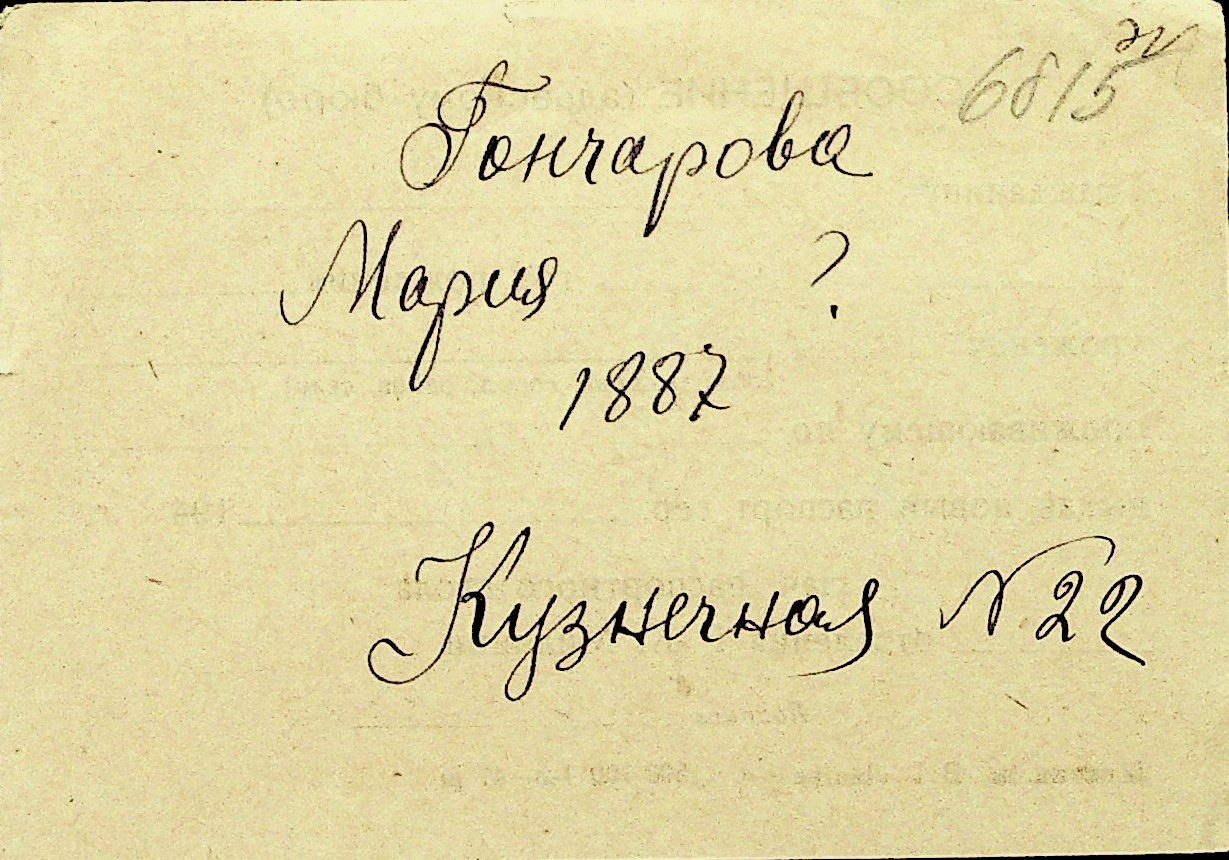 6815
Гончарова
Мария ?
1887
Кузнечная N 22